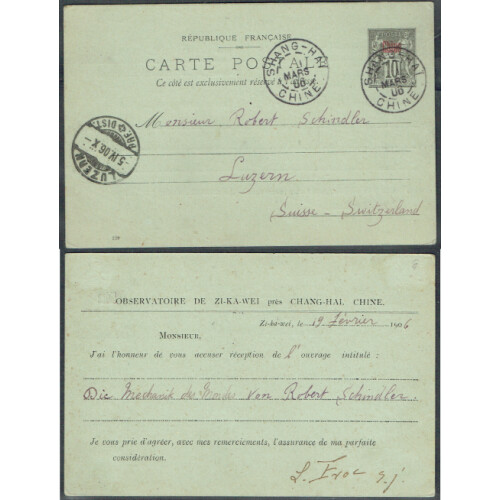 RÉPUBLIQUE FRANÇAISE
CARTE POS
Ce côté est exclusivement réservé à
SHANG-HAÏ
MARS
06
CHINE
10
SHANG-HAÏ
MARS
06
CHINE
LUZERN
5.IV.06.X
BRF. DIST.
Monsieur Robert Schindler
Luzern
Suisse - Switzerland
OBSERVATOIRE DE ZI-KA-WEI près CHANG-HAI, CHINE.
Zi-ka-wei, le 19 Février 1906
MONSIEUR,
J'ai l'honneur de vous accuser réception de l'ouvrage intitulé :
Die Mechanik des Mondes von Robert Schindler.
Je vous prie d'agréer, avec mes remerciements, l'assurance de ma parfaite
considération.
L. Froc s.j.